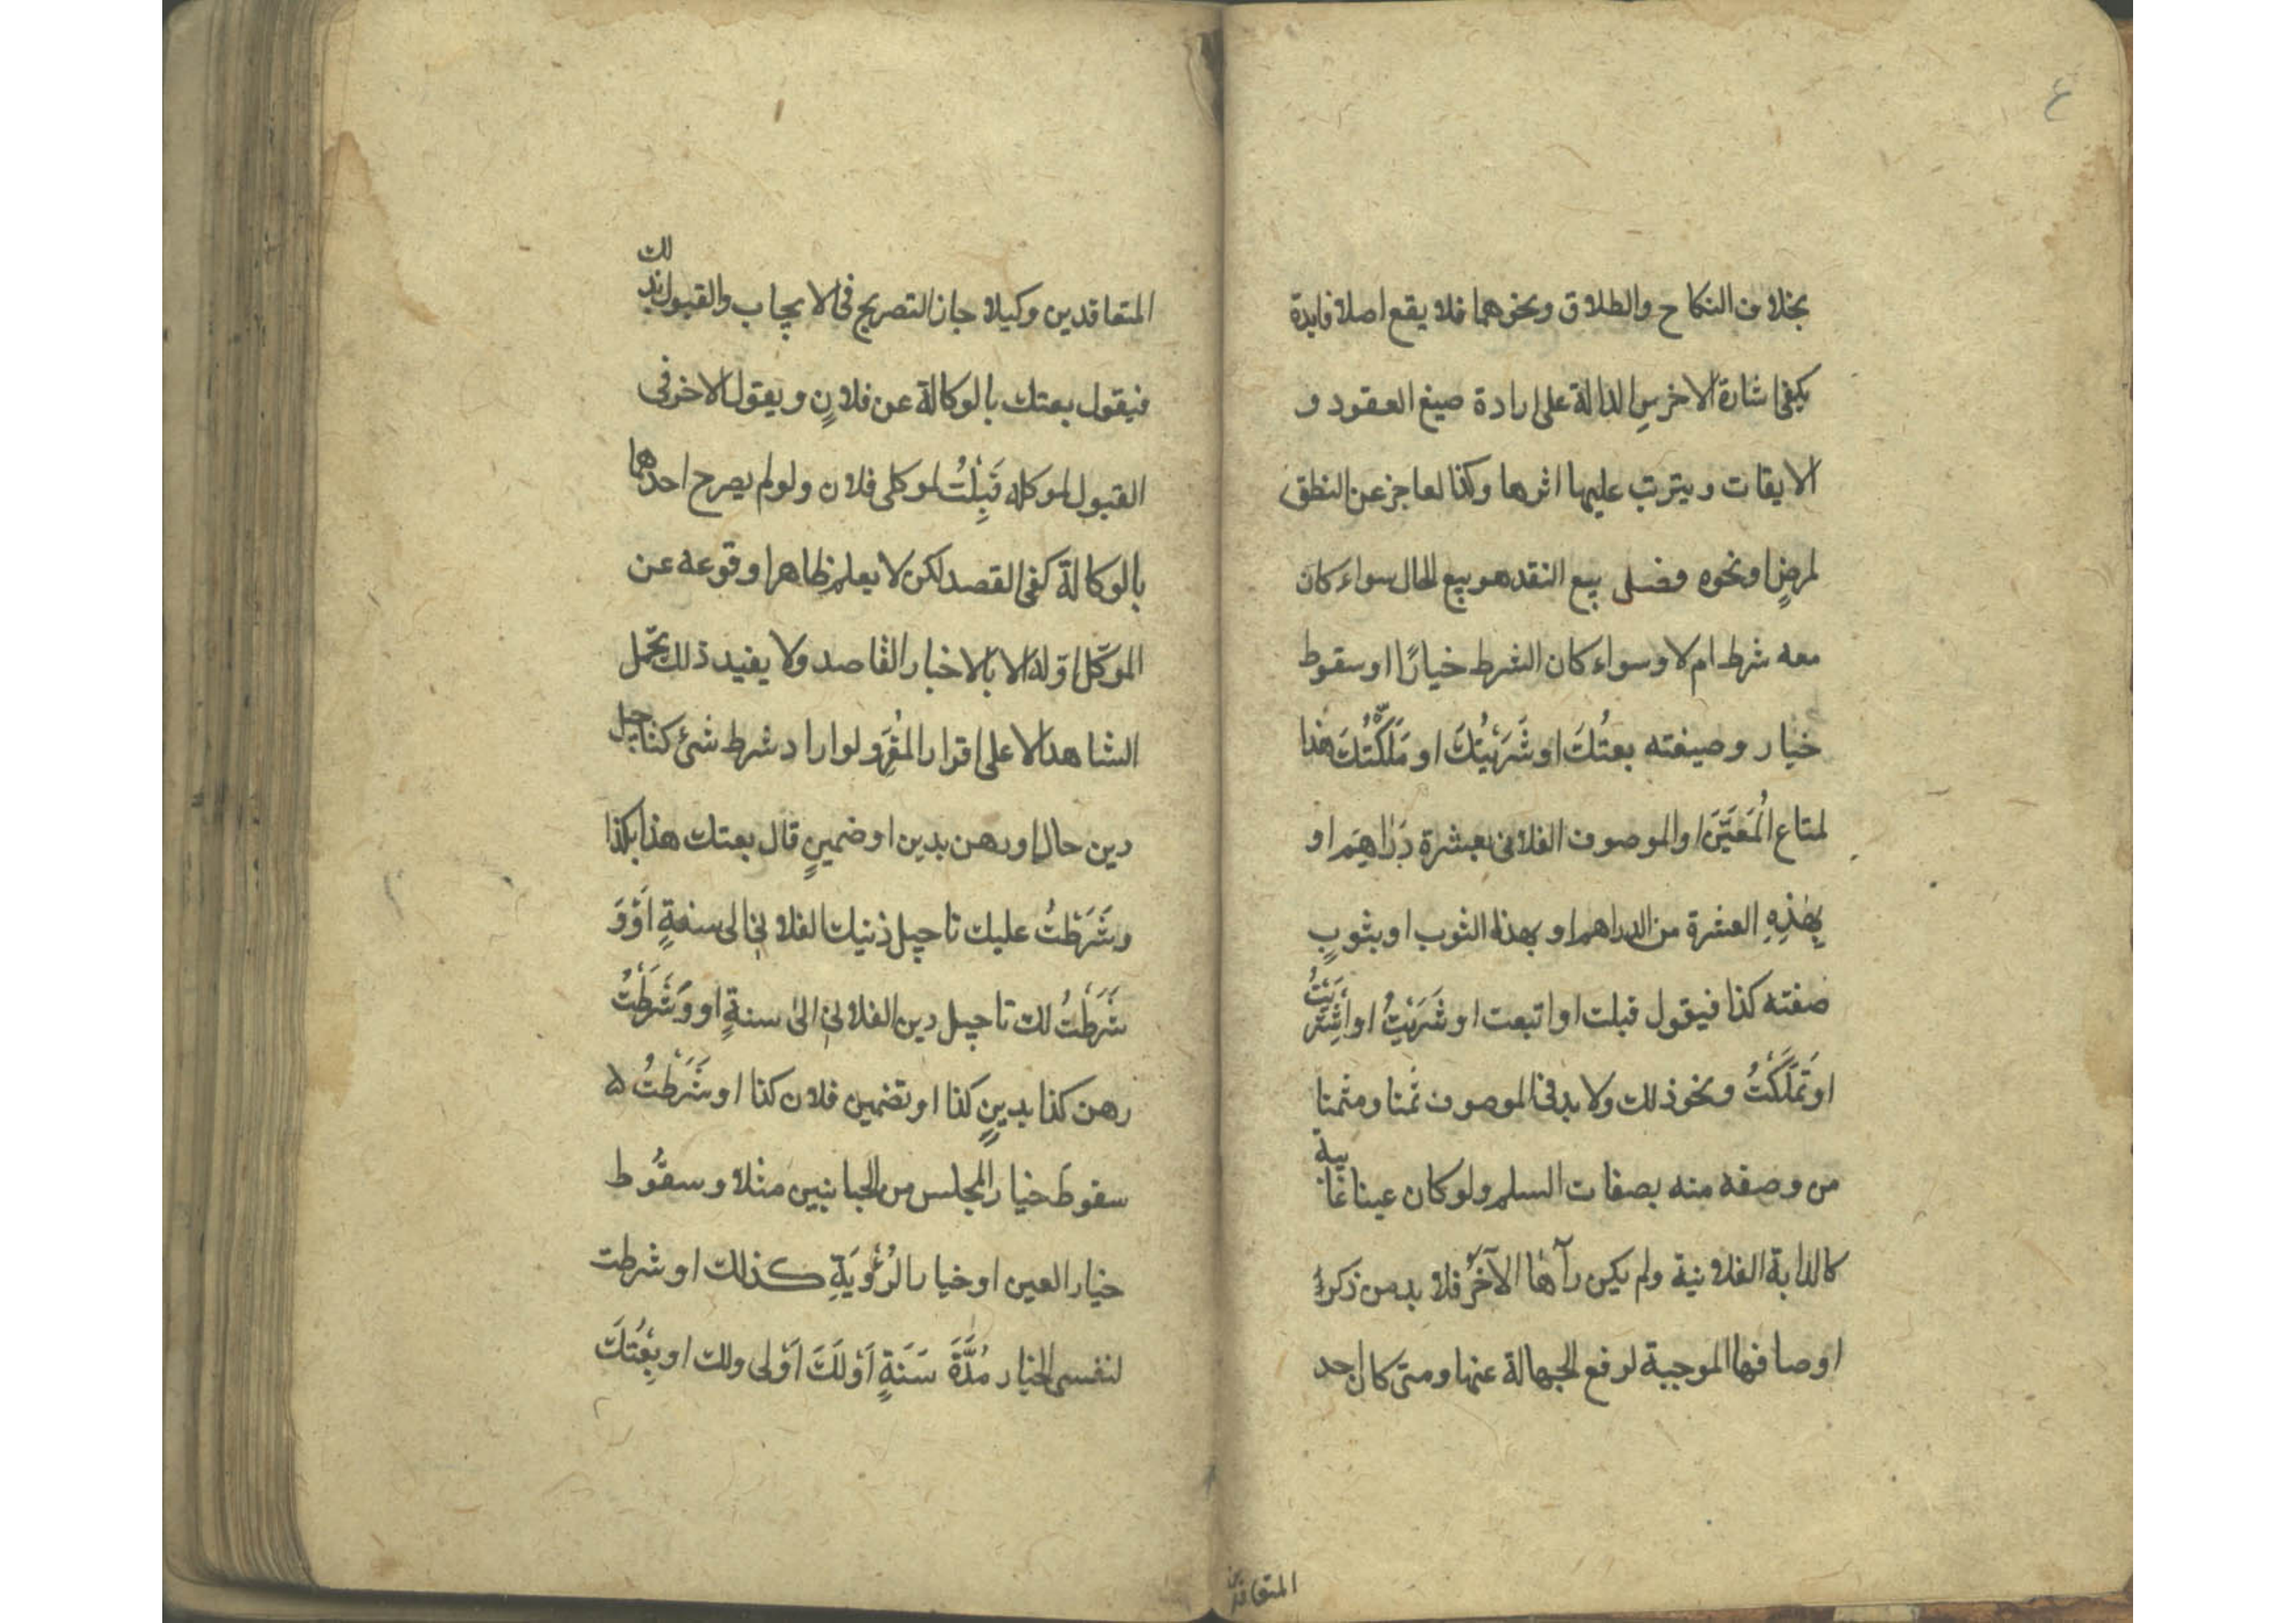 ٤
بخلاف النكاح والطلاق ونحوهما فلا يقع اصلا فايدة
يكفى اشارة الاخرسِ الدالة على ارادة صيغ العقود و
الايقات ويترتب عليها اثرها وكذا لعاجز عن النطق
لمرضٍ او نحوه فصل بيع النقد هو بيع الحال سواء كان
معه شرط ام لا وسواء كان الشرط خيارًا او سقوط
خيار وصيغته بعتُكَ او شَرَيْتُكَ او مَلَّكْتُكَ هذا
لمتاع الْمَعَيَّنَ او الموصوف الفلانى بعشرة دَرَاهِمَ او
بِهٰذِهِ العشرة من الدراهم او بهذا الثوب او بثوبٍ
صفته كذا فيقول قبلت او اتبعت او شَرَيْتُ او اشْتَرَيْتُ
او تَمَلَّكْتُ ونحو ذلك ولا بد فى الموصوف ثمنا ومثمنا
من وصفه منه بصفات السلم ولو كان عينا غائبة
كالدابة الفلانية ولم يكن رآها الآخَرُ فلا بد من ذكر
اوصافها الموجبة لرفع الجهالة عنها ومتى كان احد
المتعاقدين
المتعاقدين وكيلا جاز التصريح فى الايجاب والقبول بذلك
فيقول بعتك بالوكالة عن فلانٍ ويقول الاخر فى
القبول لموكله قَبِلْتُ لموكلى فلان ولو لم يصرح احدهما
بالوكالة كفى القصد لكن لا يعلم ظاهرا وقوعه عن
الموكّل اوّلهُ الا بالاخبار القاصد ولا يفيد ذلك تحمل
الشاهد الا على اقرار المقُرِّ ولو اراد شرط شئ كتاجيل
دين حالٍ او رهن بدين او ضمينٍ قال بعتك هذا بكذا
وشَرَطْتُ عليك تاجيل دينك الفلانى الى سنةٍ اَوْوَ
شَرَطْتُ لك تاجيل دين الفلانى الىٰ سنةٍ او وَشَرَطْتُ
رهن كذا بدينٍ كذا او تضمين فلان كذا او شَرَطْتُ
سقوط خيار المجلس من الجانبين مثلا وسقُوط
خيار العين او خيار الرُؤْيَةِ كذلك او شرطت
لنفسى الخيار مُدَّةَ سَنَةٍ اَوْلَكَ اَوْلى ولك او بِعْتُكَ